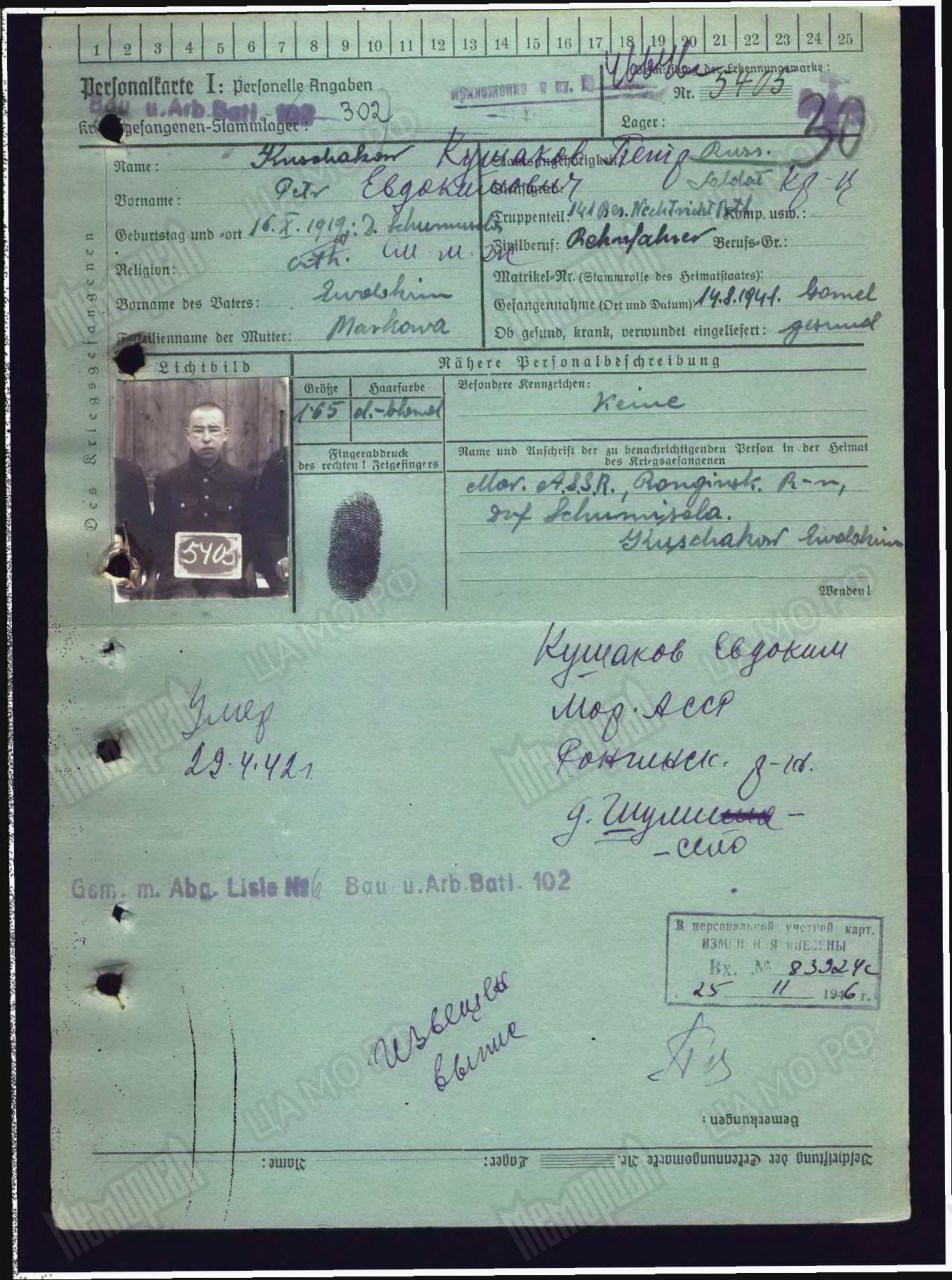 1 2 3 4 5 6 7 8 9 10 11 12 13 14 15 16 17 18 19 20 21 22 23 24 25
Personalkarte I: Personelle Angaben
Bau u. Arb. Batl. 102 302
Kriegsgefangenen-Stammlager:
der Erkennungsmarke:
Nr. 5403
Lager:
30
Des Kriegsgefangenen
Name: Kuschakow Кушаков Петр
Vorname: Petr Евдокимович
Geburtstag und -ort 16.X.1919
Religion: orth.
Vorname des Vaters: Ewdokim
Familienname der Mutter: Markowa
Staatsangehörigkeit: Russ.
Dienstgrad: Soldat кр-ц
Truppenteil: 141 Komp. usw.:
Zivilberuf: Berufs-Gr.:
Matrikel-Nr. (Stammrolle des Heimatstaates):
Gefangennahme (Ort und Datum): 14.8.1941. Gomel
Ob gesund, krank, verwundet eingeliefert: gesund
Lichtbild
5403
Nähere Personalbeschreibung
Größe Haarfarbe Besondere Kennzeichen:
165 d.-blond Keine
Fingerabdruck
des rechten! Zeigefingers
Name und Anschrift der zu benachrichtigenden Person in der Heimat
des Kriegsgefangenen
Mar. A.S.S.R., Ronginsk. R-n,
Schumisola.
Kuschakow Ewdokim
Wenden!
Кушаков Евдоким
Мар. АССР
Ронгинск. р-н.
д. Шуми
-село
Умер
29.4.42 г
Gem. m. Abg. Liste № 6 Bau u. Arb. Batl. 102
В персональной учетной карт.
ИЗМЕНЕНИЯ ВНЕСЕНЫ
Вх. № 83924с
25 11 1946 г.
Извещен
Bemerkungen:
Beschriftung der Erkennungsmarke Nr. Lager: Name:
Мемориал
ЦАМО РФ